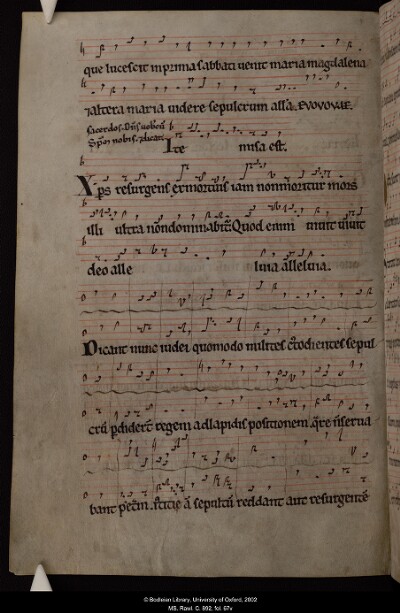 que lucescit in prima sabbati uenit maria magdalena
⁊ altera maria uidere sepulcrum alla. EVOVAE.
sacerdos. Dñs uobiscū
Sp̄s nobis. ⁊ dicant Ite misa est.
Xp̄s resurgens ex mortuis iam non moritur mors
illi ultra non dominabit̃ Quod enim uiuit uiuit
deo alle luia alleluia.
Dicant nunc iudei quomodo milites custodientes sepul
crū ꝑdideret̃ regem ad lapidis positionem. qͣre ñ serua
bant petrā iusticie aut̃ sepultū reddant aut resurgentē
© Bodleian Library, University of Oxford, 2002
MS. Rawl. C. 892, fol. 67v